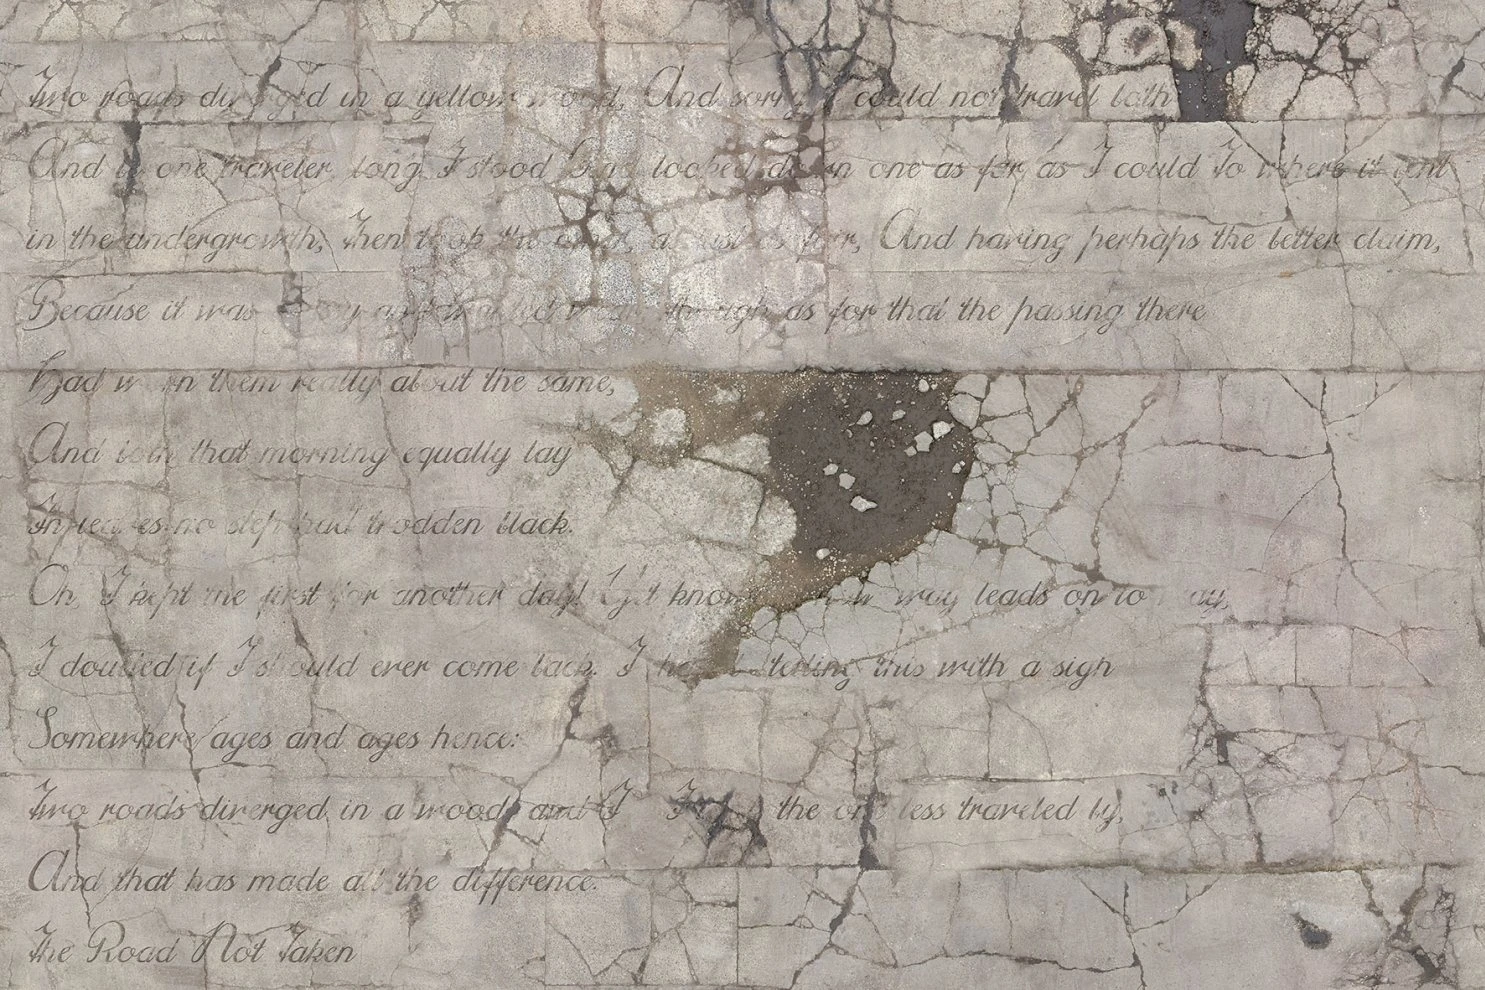 Two roads diverged in a yellow wood, And sorry I could not travel both
And be one traveler, long I stood And looked down one as far as I could To where it bent
in the undergrowth; Then took the other, as just as fair, And having perhaps the better claim,
Because it was grassy and wanted wear; though as for that the passing there
Had worn them really about the same,
And both that morning equally lay
In leaves no step had trodden black.
Oh, I kept the first for another day! Yet knowing how way leads on to way,
I doubted if I should ever come back. I telling this with a sigh
Somewhere ages and ages hence:
Two roads diverged in a wood, and I I the one less traveled by,
And that has made all the difference.
The Road Not Taken